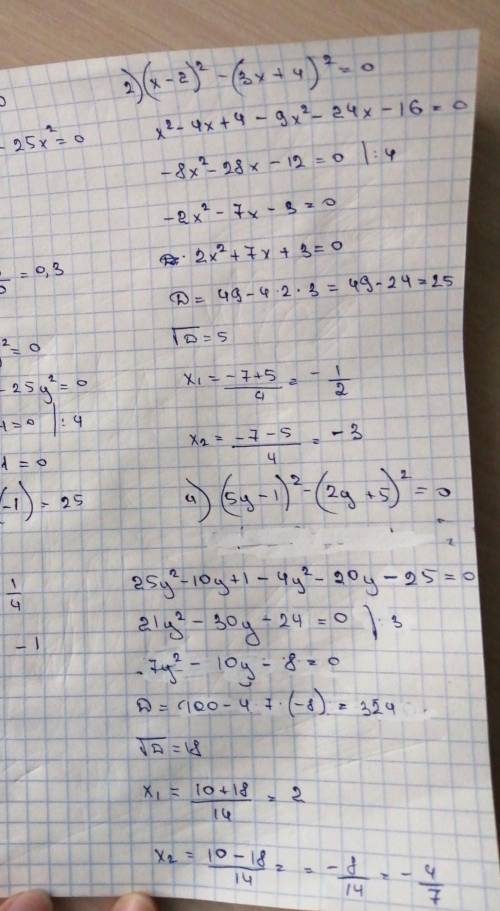 - 25x² = 0
= 0,3
² = 0
- 25y² = 0
= 0 | : 4
= 0
(-1) = 25
1/4
-1
2) (x-2)² - (3x+4)² = 0
x² - 4x + 4 - 9x² - 24x - 16 = 0
-8x² - 28x - 12 = 0 | : 4
-2x² - 7x - 3 = 0
2x² + 7x + 3 = 0
D = 49 - 4·2·3 = 49 - 24 = 25
√D = 5
x₁ = (-7+5)/4 = -1/2
x₂ = (-7-5)/4 = -3
4) (5y-1)² - (2y+5)² = 0
25y² - 10y + 1 - 4y² - 20y - 25 = 0
21y² - 30y - 24 = 0 | : 3
7y² - 10y - 8 = 0
D = 100 - 4·7·(-8) = 324
√D = 18
x₁ = (10+18)/14 = 2
x₂ = (10-18)/14 = = -8/14 = -4/7